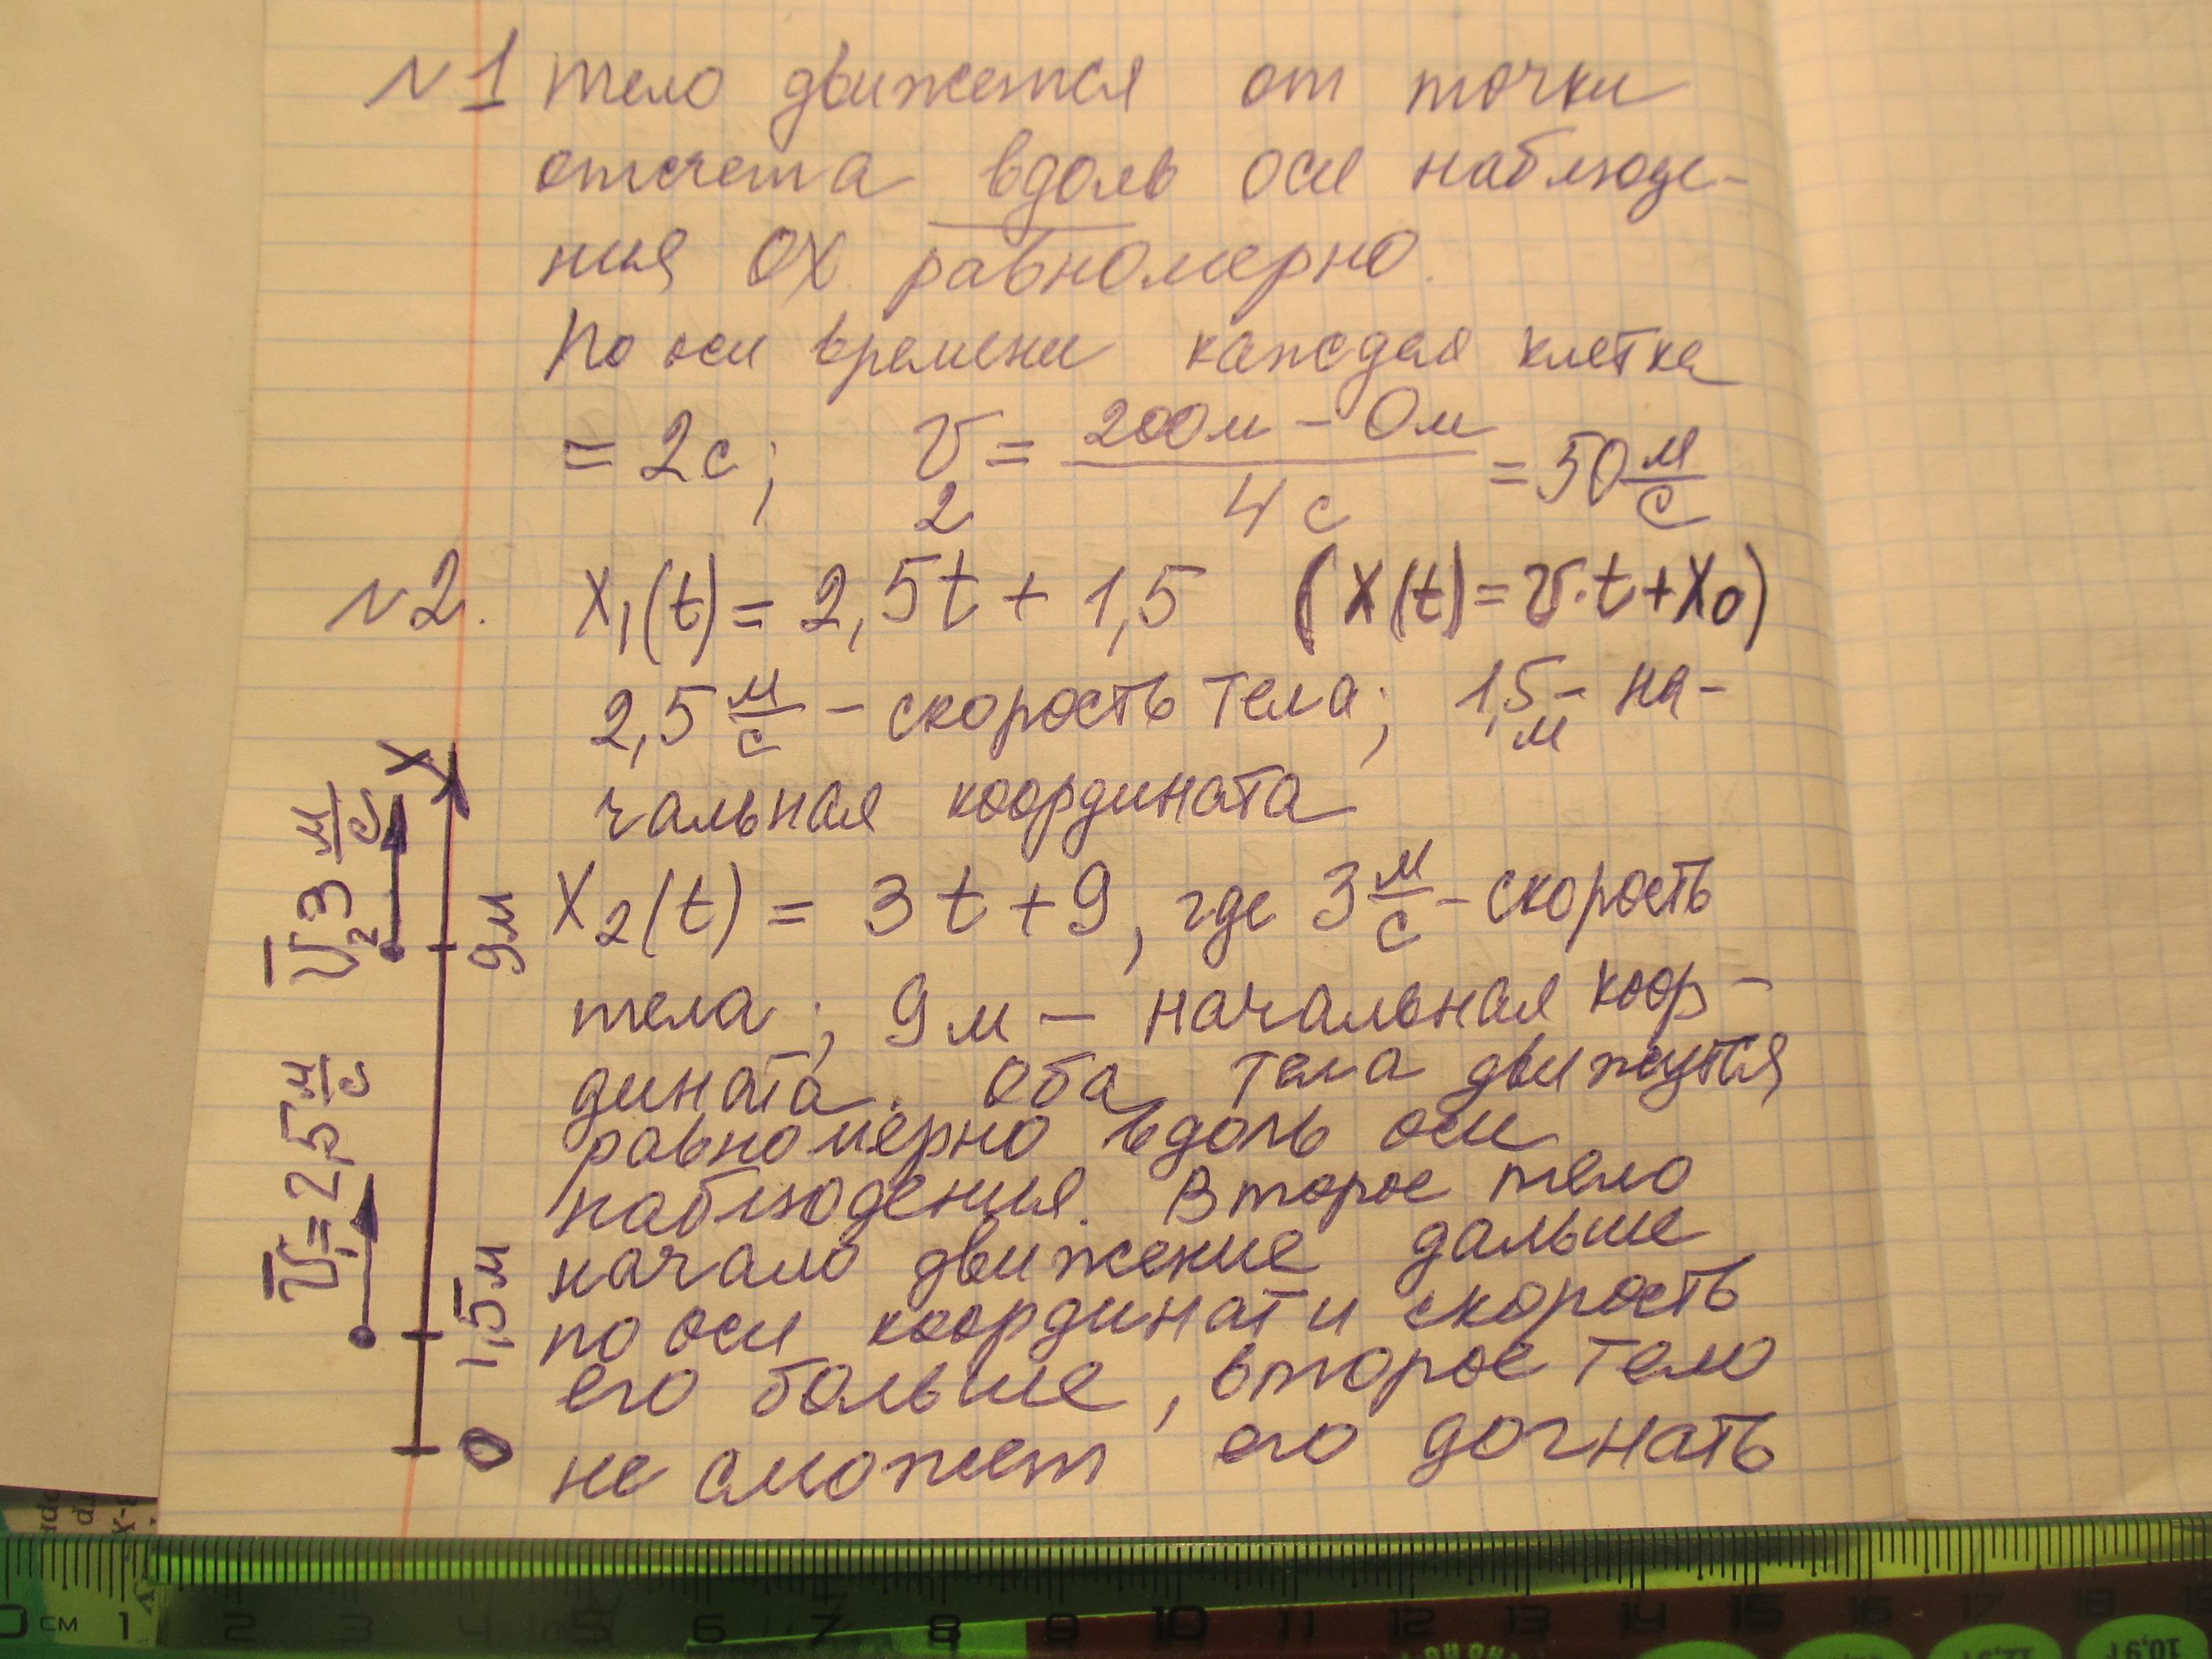 №1 тело движется от точки
отсчета вдоль оси наблюде-
ния ОХ равномерно.
По оси времени каждая клетка
= 2с; v₂ = (200м – 0м)/4с = 50 м/с
№2. X₁(t) = 2,5t + 1,5 (X(t) = v·t + X₀)
2,5 м/с – скорость тела; 1,5 м – на-
чальная координата
X₂(t) = 3t + 9, где 3 м/с – скорость
тела; 9м – начальная коор-
дината. Оба тела движутся
равномерно вдоль оси
наблюдения. Второе тело
начало движение дальше
по оси координат и скорость
его больше, второе тело
не сможет его догнать
0 1,5м 9м X
v̅₁ = 2,5 м/с
v̅₂ 3 м/с
0 см 1 2 3 4 5 6 7 8 9 10 11 12 13 14 15 16 17 18